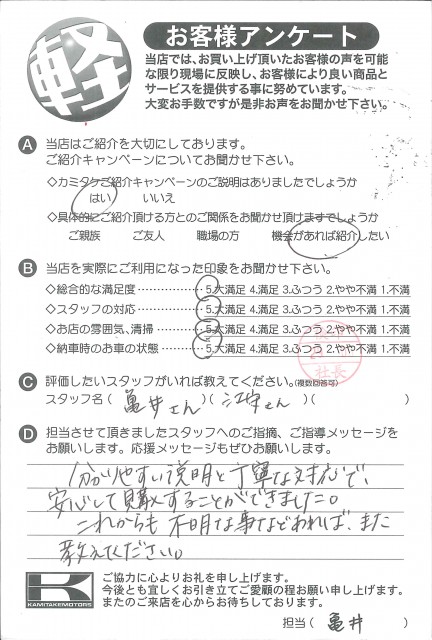 軽
お客様アンケート
当店では、お買い上げ頂いたお客様の声を可能
な限り現場に反映し、お客様により良い商品と
サービスを提供する事に努めています。
大変お手数ですが是非お声をお聞かせ下さい。
A 当店はご紹介を大切にしております。
ご紹介キャンペーンについてお聞かせ下さい。
◇カミタケご紹介キャンペーンのご説明はありましたでしょうか
はい いいえ
◇具体的にご紹介頂ける方とのご関係をお聞かせ頂けますでしょうか
ご親族 ご友人 職場の方 機会があれば紹介したい
B 当店を実際にご利用になった印象をお聞かせ下さい。
◇総合的な満足度 5.大満足 4.満足 3.ふつう 2.やや不満 1.不満
◇スタッフの対応 5.大満足 4.満足 3.ふつう 2.やや不満 1.不満
◇お店の雰囲気、清掃 5.大満足 4.満足 3.ふつう 2.やや不満 1.不満
◇納車時のお車の状態 5.大満足 4.満足 3.ふつう 2.やや不満 1.不満
社長
C 評価したいスタッフがいれば教えてください。(複数回答可)
スタッフ名 ( 亀井さん ) ( さん ) ( )
D 担当させて頂きましたスタッフへのご指摘、ご指導メッセージを
お願いします。応援メッセージもぜひお願いします。
分かりやすい説明と丁寧な対応で、
安心して購入することができました。
これからも不明な事などあれば、また
教えてください。
KAMITAKEMOTORS
ご協力に心よりお礼を申し上げます。
今後とも宜しくお引き立てご愛顧の程お願い申し上げます。
またのご来店を心からお待ちしております。
担当 ( 亀井 )